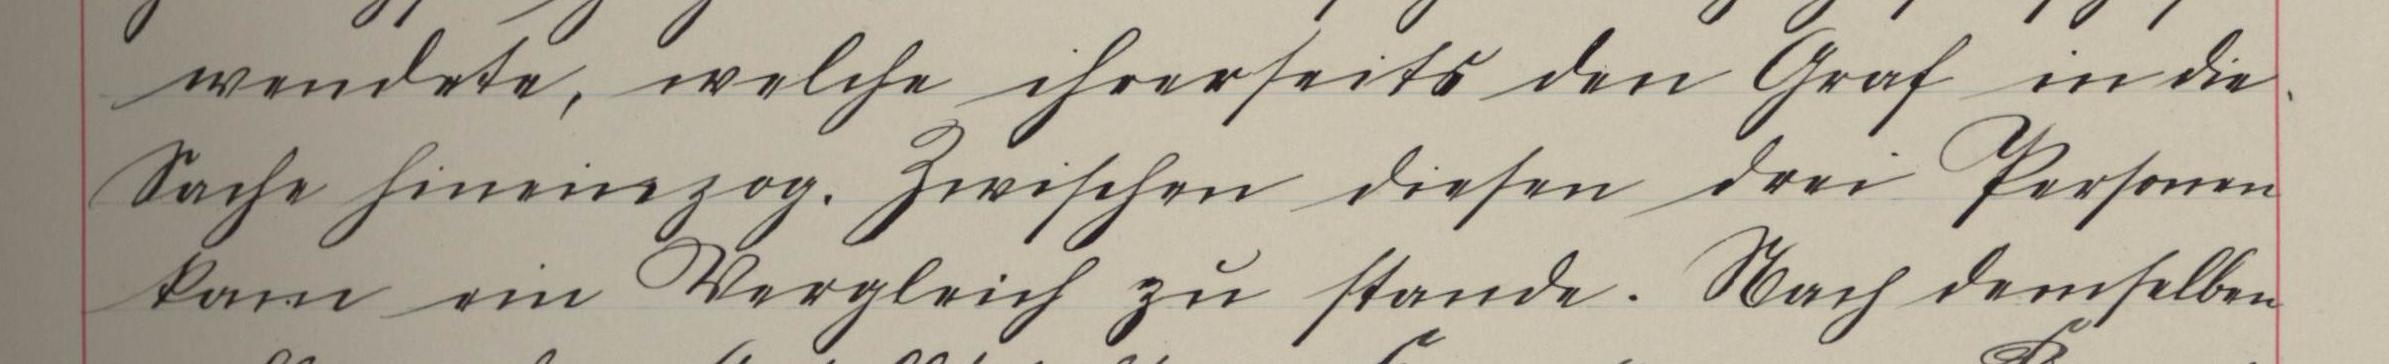 wendete, welche ihrerseits den Graf in die
Sache hineinzog. Zwischen diesen drei Personen
kam ein Vergleich zu stande. Nach demselben